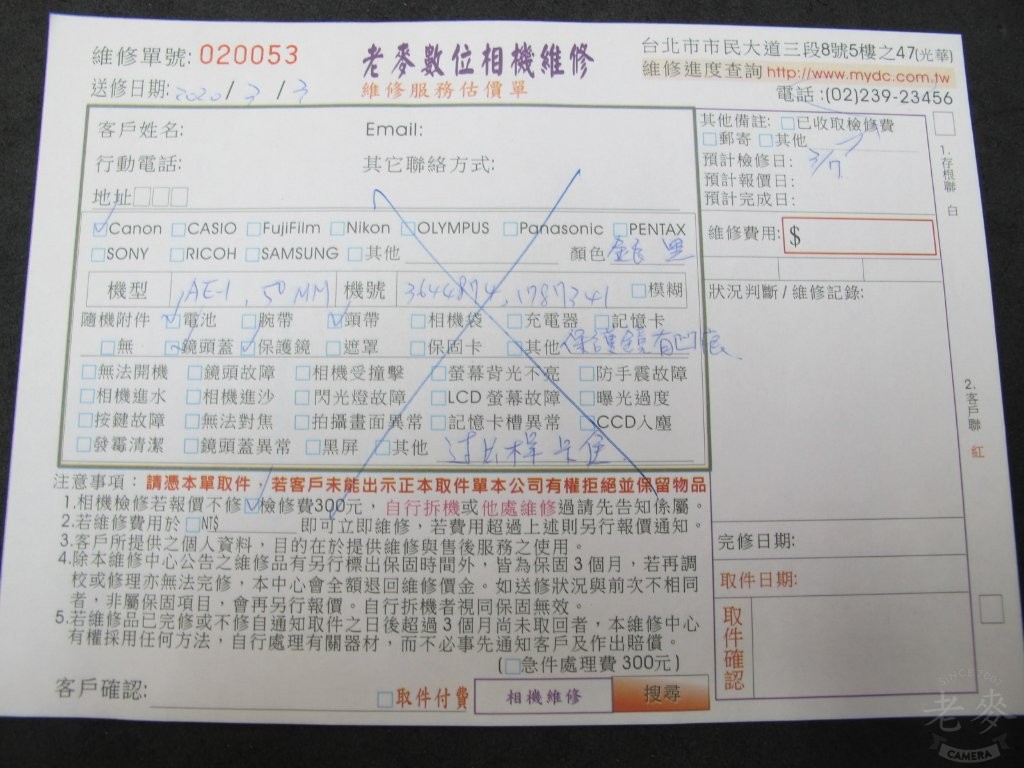 維修單號: 020053
老麥數位相機維修
台北市市民大道三段8號5樓之47(光華)
維修進度查詢 http://www.mydc.com.tw
電話:(02)239-23456
送修日期: 2020/3/3
維修服務估價單
客戶姓名:
Email:
行動電話:
其它聯絡方式:
地址□□□
☑Canon □CASIO □FujiFilm □Nikon □OLYMPUS □Panasonic □PENTAX
□SONY □RICOH □SAMSUNG □其他 顏色 銀黑
機型 AE-1, 50MM 機號 3644874, 1787341 □模糊
隨機附件 ☑電池 □腕帶 ☑頸帶 □相機袋 □充電器 □記憶卡
□無 ☑鏡頭蓋 ☑保護鏡 □遮罩 □保固卡 □其他 保護鏡有凹痕
□無法開機 □鏡頭故障 □相機受撞擊 □螢幕背光不亮 □防手震故障
□相機進水 □相機進沙 □閃光燈故障 □LCD 螢幕故障 □曝光過度
□按鍵故障 □無法對焦 □拍攝畫面異常 □記憶卡槽異常 □CCD入塵
□發霉清潔 □鏡頭蓋異常 □黑屏 □其他 過片桿卡住
其他備註: □已收取檢修費
□郵寄 □其他
預計檢修日: 3/7
預計報價日:
預計完成日:
維修費用: $
狀況判斷/維修記錄:
完修日期:
取件日期:
取件確認
1.存根聯 白
2.客戶聯 紅
注意事項:請憑本單取件，若客戶未能出示正本取件單本公司有權拒絕並保留物品
1.相機檢修若報價不修☑檢修費300元，自行拆機或他處維修過請先告知係屬。
2.若維修費用於□NT$ 即可立即維修，若費用超過上述則另行報價通知。
3.客戶所提供之個人資料，目的在於提供維修與售後服務之使用。
4.除本維修中心公告之維修品有另行標出保固時間外，皆為保固3個月，若再調
校或修理亦無法完修，本中心會全額退回維修價金。如送修狀況與前次不相同
者，非屬保固項目，會再另行報價。自行拆機者視同保固無效。
5.若維修品已完修或不修自通知取件之日後超過3個月尚未取回者，本維修中心
有權採用任何方法，自行處理有關器材，而不必事先通知客戶及作出賠償。
(□急件處理費 300元)
客戶確認:
□取件付費
相機維修
搜尋
SINCE 1997
老麥
CAMERA